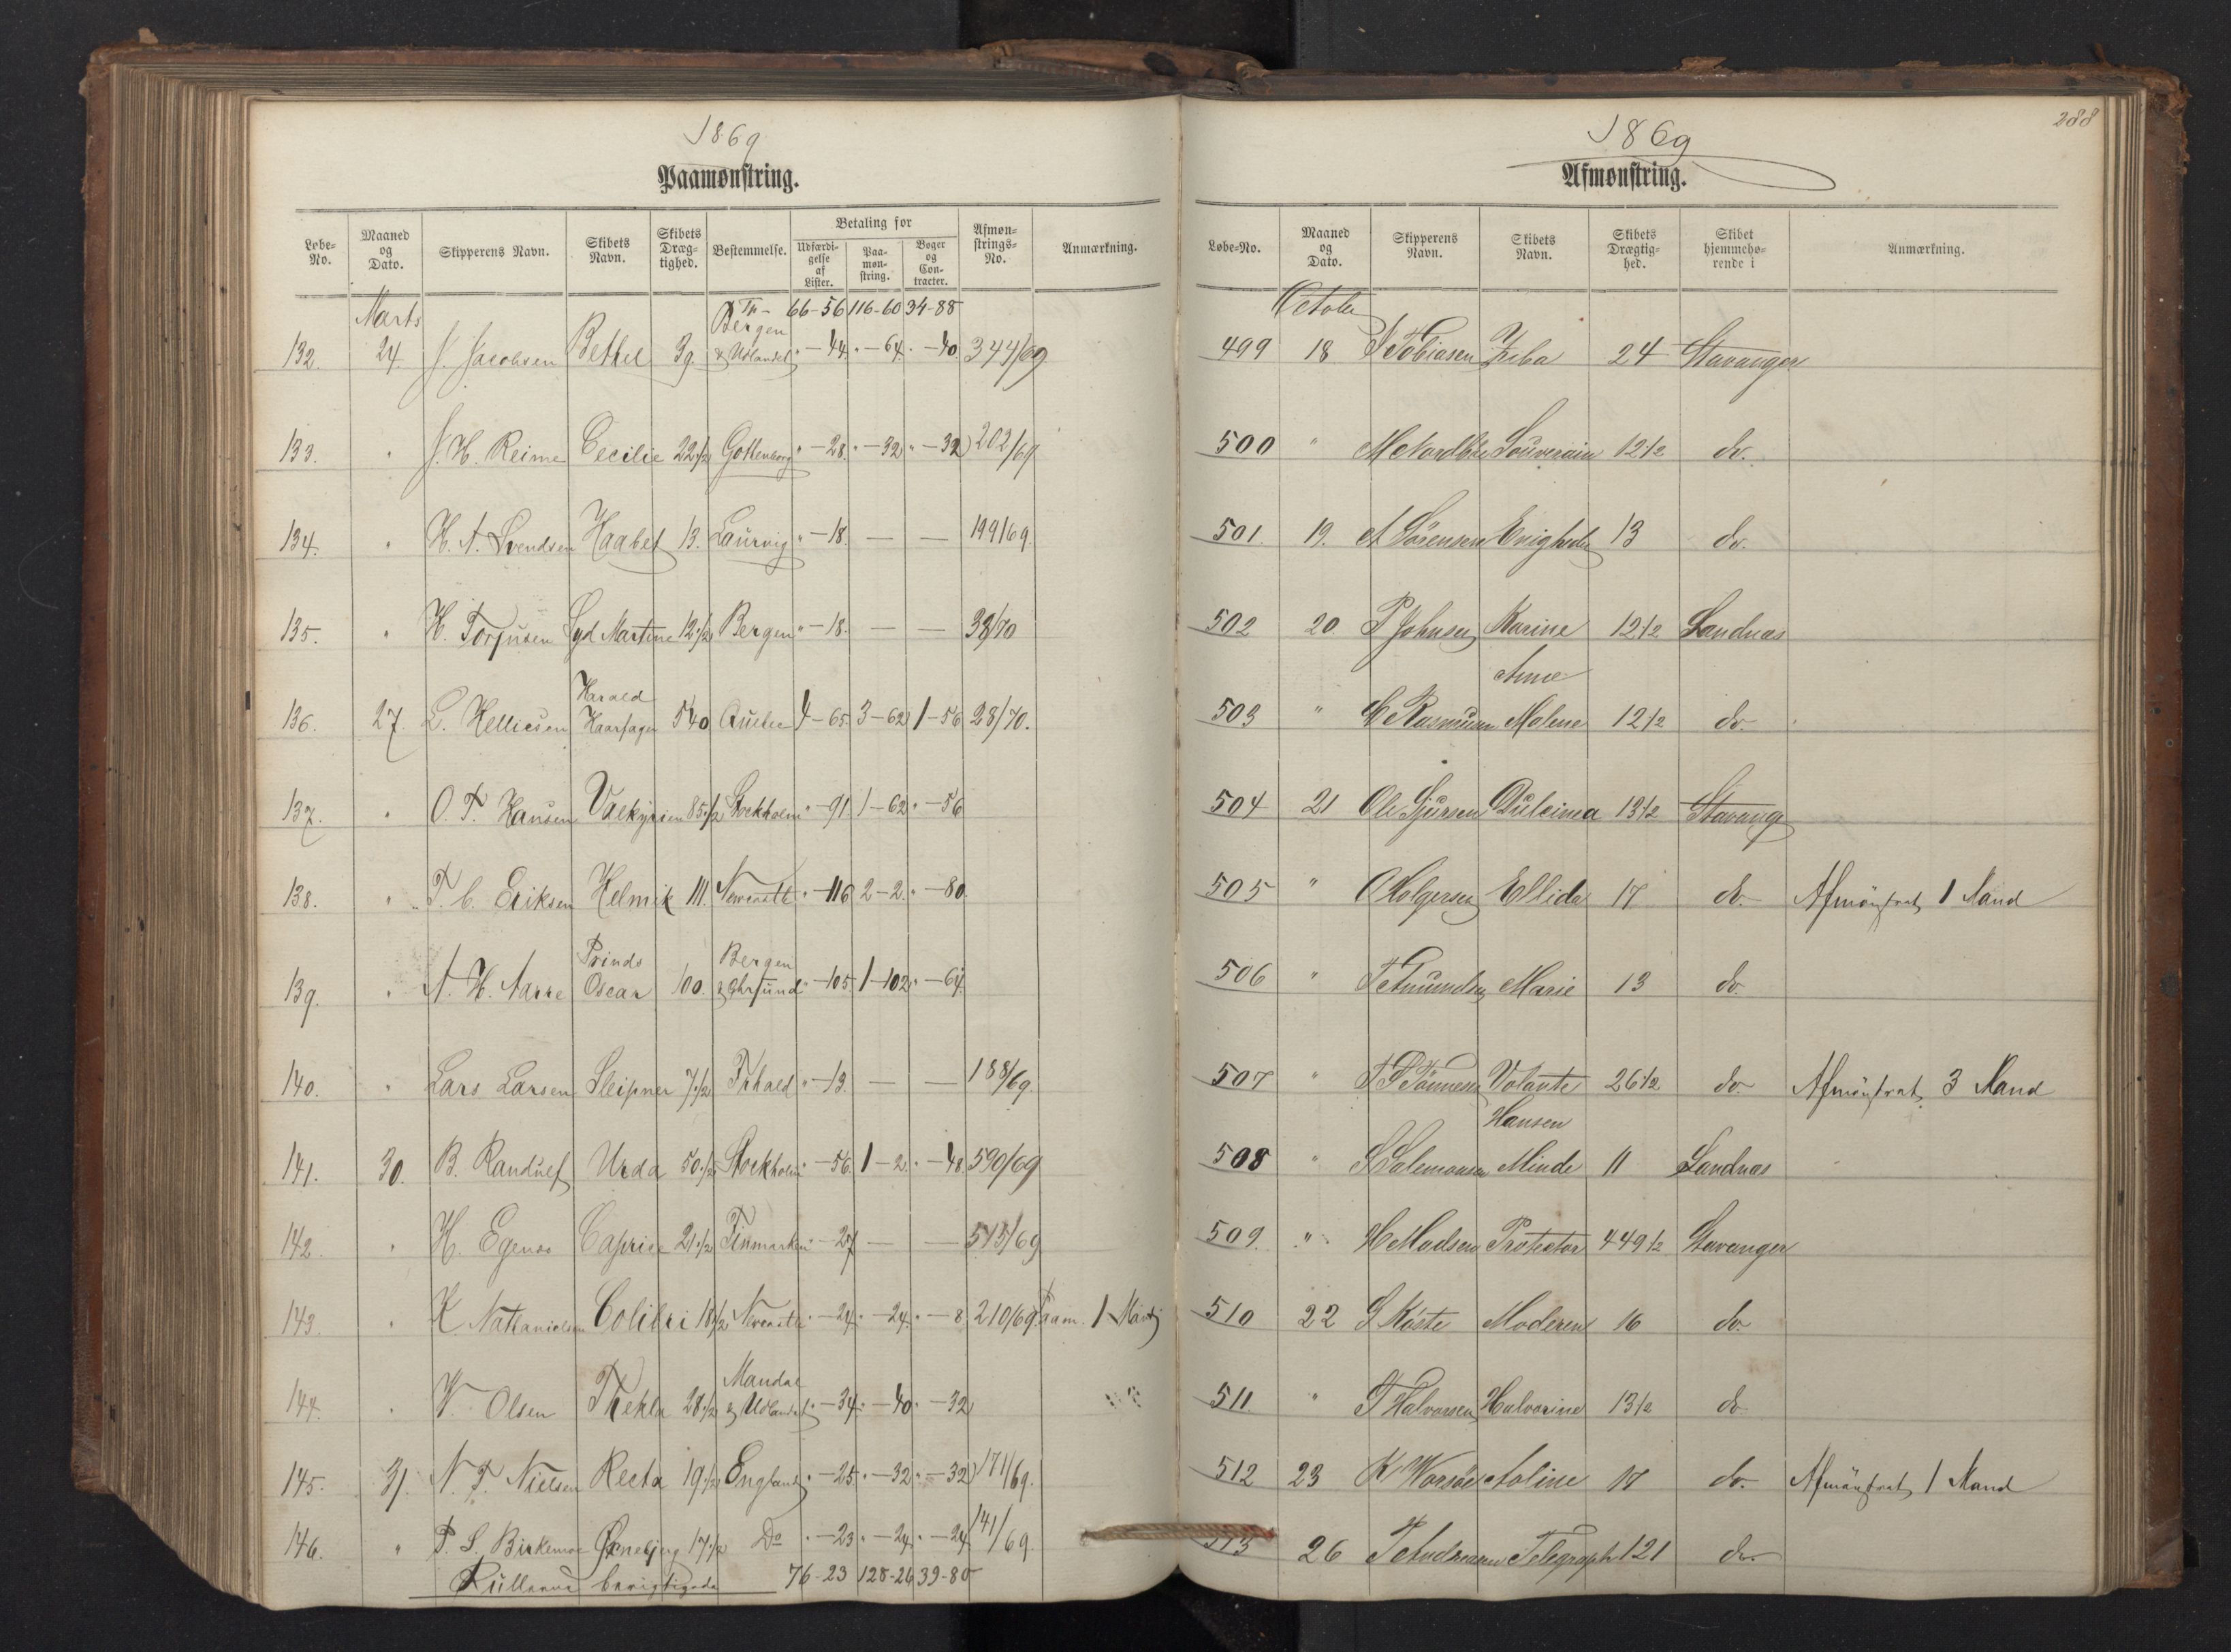 1869
Paamønstring.
Løbe-No. Maaned og Dato. Skipperens Navn. Skibets Navn. Skibets Dræg-tighed. Bestemmelse. Betaling for Udfærdi-gelse af Lister. Paa-møn-string. Bøger og Con-tracter. Afmøn-strings-No. Anmærkning.
Marts Tr- 66-56 116-60 34-88
132. 24. J. Jacobsen Bethel 39. Bergen & Udlandet " -44. " -64. " -40. 344/69
133. " J. H. Reime Cecilie 22 1/2 Gothenborg " -28. " -32 " -32 202/69
134. " H. A. Svendsen Haabet 13. Laurvig " -18. — — 199/69.
135. " H. Torjusen Gyd Martine 12 1/2 Bergen " -18. — — 38/70
136. 27. L. Helliesen Harald Haarfager 540 Quebec 4-65. 3-62 1-56 28/70.
137. " O. T. Hansen Valkyrien 85 1/2 Stockholm " -91. 1-62 " -56
138. " T. C. Eriksen Helmik 111. Newcastle " -116 2-2. " -80.
139. " A. H. Aarre Prinds Oscar 100. Bergen & Øhrsund " -105. 1-102 " -64.
140. " Lars Larsen Sleipner 7 1/2 Frhald " -13. — — 188/69.
141. 30. B. Randulf Urda 50 1/2 Stockholm " -56. 1-2. " -48. 590/69
142. " H. Egenæs Caprice 21 1/2 Finmarken " -27 — — 545/69
143. " K. Nathanielsen Colibri 18 1/2 Newcastle " -24. " -24. " -8. 210/69 Paam. 1 Mand
144. " W. Olsen Thekla 28 1/2 Mandal & Udlandet " -34. " -40. " -32
145. 31. N. T. Nielsen Recta 19 1/2 England " -25. " -32. " -32 171/69.
146. " P. S. Birkemoe Ørnebjerg 17 1/2 Do " -23 " -24. " -24. 141/69.
Rullerne berigtigede 76-23 128-26 39-80
288
1869
Afmønstring.
Løbe-No. Maaned og Dato. Skipperens Navn. Skibets Navn. Skibets Drægtig-hed. Skibet hjemmehø-rende i Anmærkning.
October
499 18 Tobiasen 24 Stavanger
500 " M Nordbø Souverain 12 1/2 do.
501. 19. A Sörensen Enigheden 13 do.
502 20 P Johnsen Karine 12 1/2 Sandnæs
503 " Rasmusen Anne Malene 12 1/2 do.
504 21 Ole Sjursen Dulcinea 13 1/2 Stavang
505 " O Holgersen Ellida 17 do. Afmönstret 1 Mand
506 " T Amundsen Marie 13 do.
507 " T T Tönnesen Volante 26 1/2 do. Afmönstret 3 Mand
508 " S Salemonsen Hansen Minde 11 Sandnæs
509. " H Madsen Protector 449 1/2 Stavanger
510 22 S Köste Moderen 16 do.
511 " T Halvorsen Halvorine 13 1/2 do.
512 23 K Worsöe Aoline 17 do. Afmönstret 1 Mand
513 26 T Andreasen Telegraph 121 do.